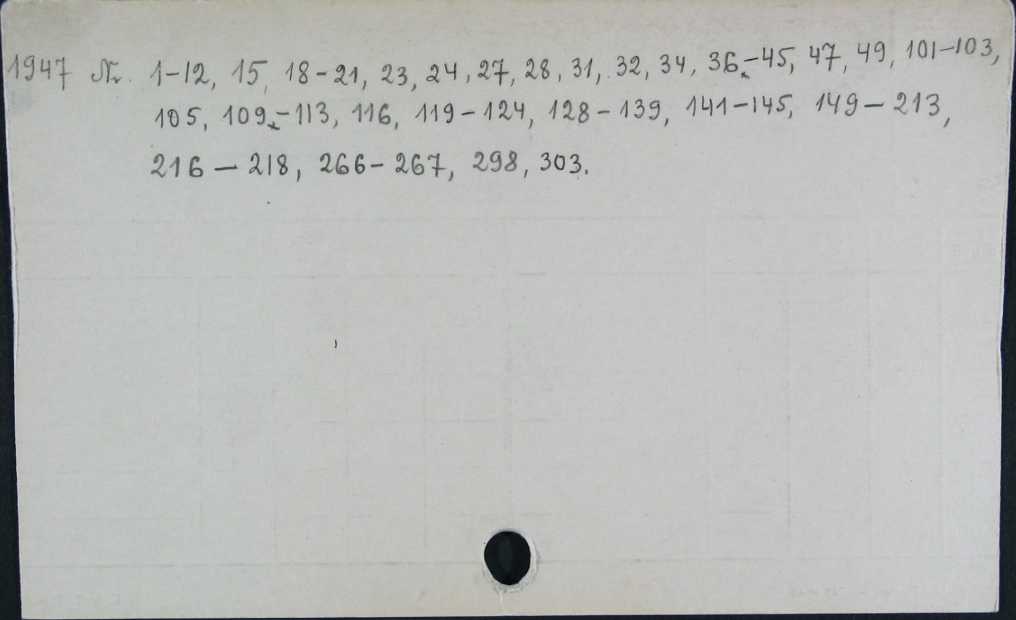 1947 Nr. 1-12, 15, 18-21, 23, 24, 27, 28, 31, 32, 34, 36-45, 47, 49, 101-103,
105, 109-113, 116, 119-124, 128-139, 141-145, 149-213,
216-218, 266-267, 298, 303.